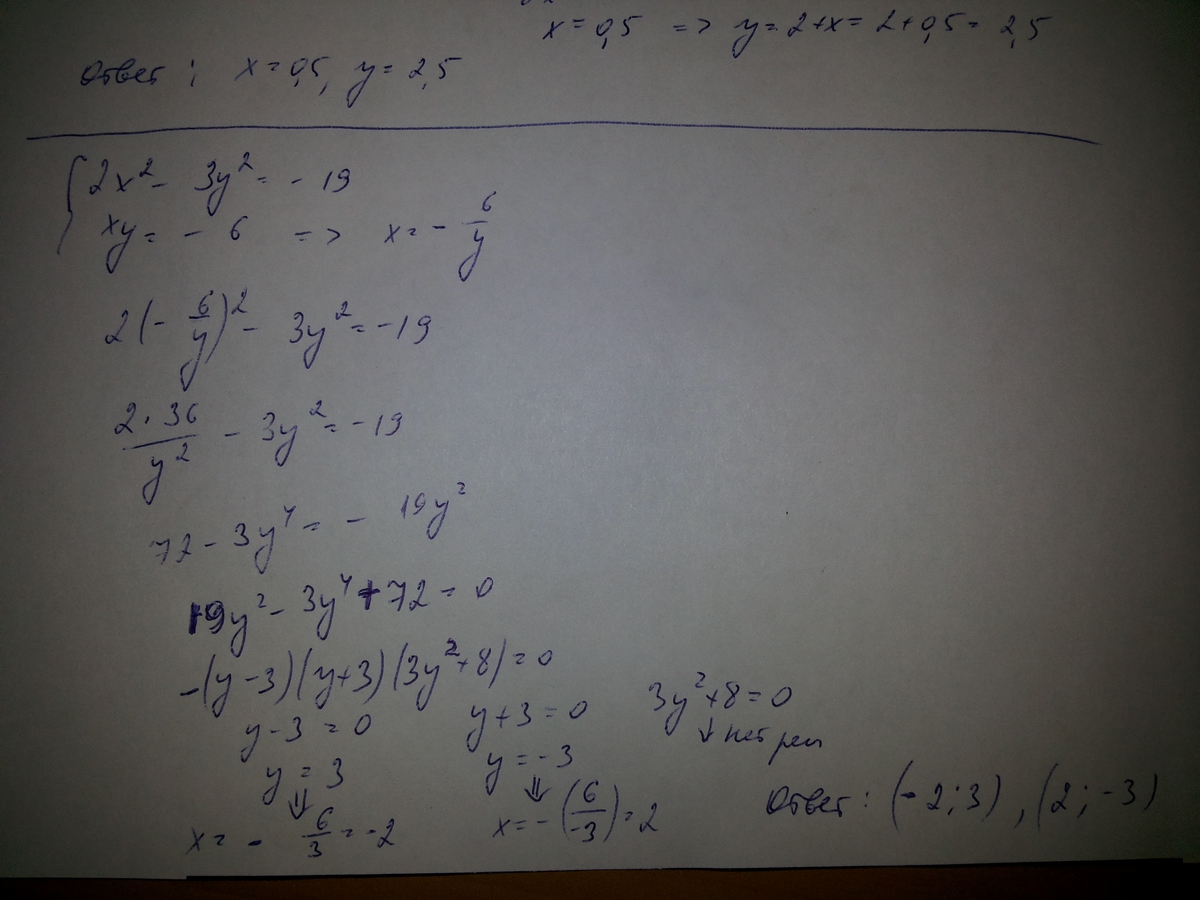 x = 0,5 => y = 2+x = 2+0,5 = 2,5
Ответ : x = 0,5, y = 2,5
{ 2x² - 3y² = - 19
xy = - 6 => x = - 6/y
2(- 6/y)² - 3y² = -19
2·36/y² - 3y² = -19
72 - 3y⁴ = - 19y²
19y² - 3y⁴ + 72 = 0
-(y-3)(y+3)(3y²+8) = 0
y-3 = 0 y+3 = 0 3y²+8 = 0
y = 3 y = -3 ↓ нет реш
⇓ ⇓
x = - 6/3 = -2 x = -(6/-3) = 2 Ответ : (-2;3), (2;-3)